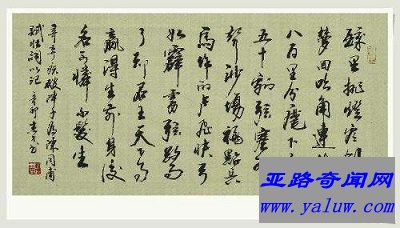 醉里挑灯看剑
梦回吹角连
八百里分麾下
五十弦翻塞外
声沙场秋点兵
马作的卢飞快弓
如霹雳弦惊
了却君王天下事
赢得生前身后
名可怜白发生
辛弃疾破阵子为陈同甫
赋壮词以记 辛卯
亚路奇闻网
www.yaluw.com